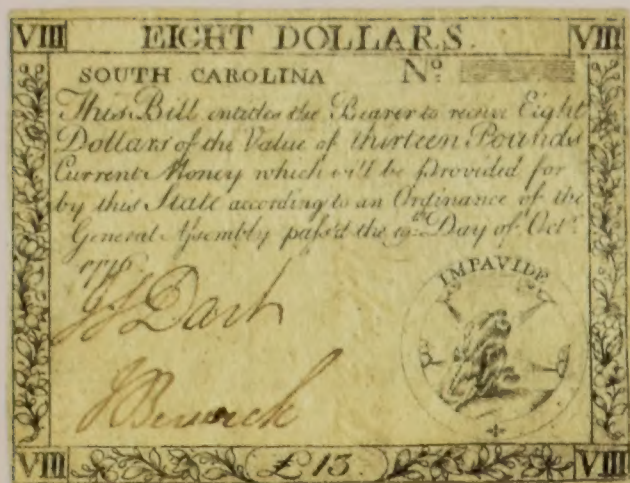 VIII EIGHT DOLLARS. VIII
SOUTH CAROLINA Nº
This Bill entitles the Bearer to receive Eight
Dollars of the Value of thirteen Pounds
Current Money which will be provided for
by this State according to an Ordinance of the
General Assembly pass'd the 19th Day of Octr.
1776.
Dart
IMPAVIDE
J Berwick
VIII £13. VIII